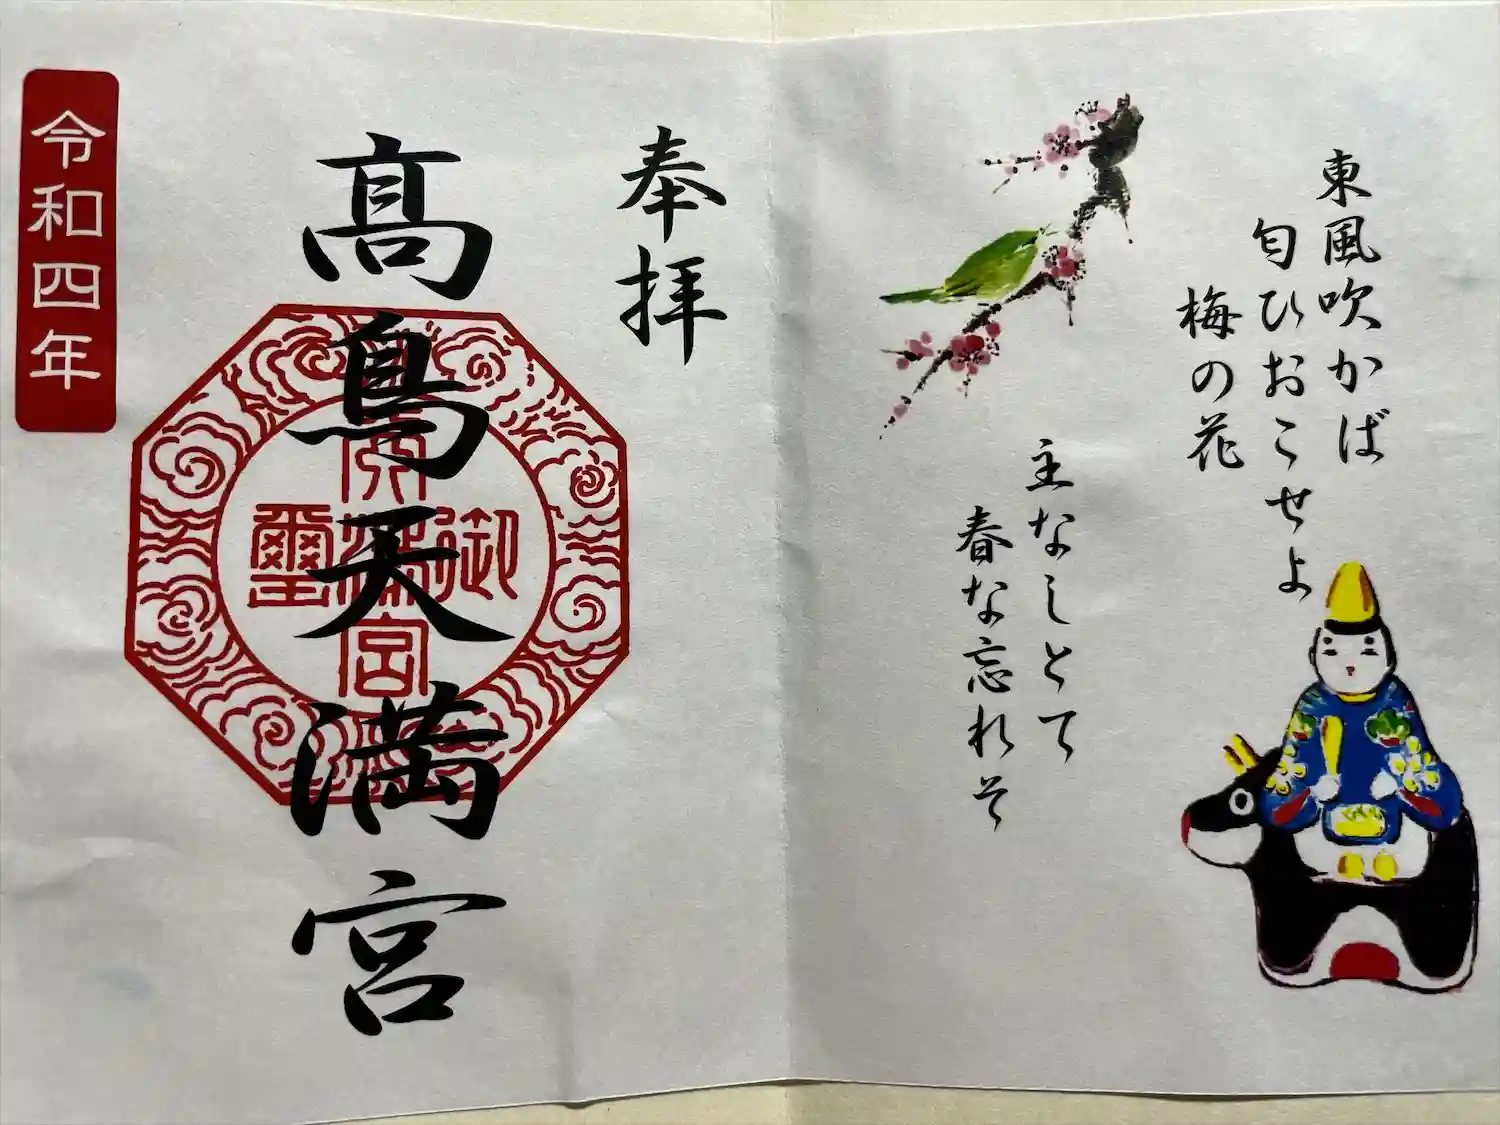 東風吹かば
匂ひおこせよ
梅の花
主なしとて
春な忘れそ
奉拝
高鳥天満宮
御
天満宮
璽
令和四年